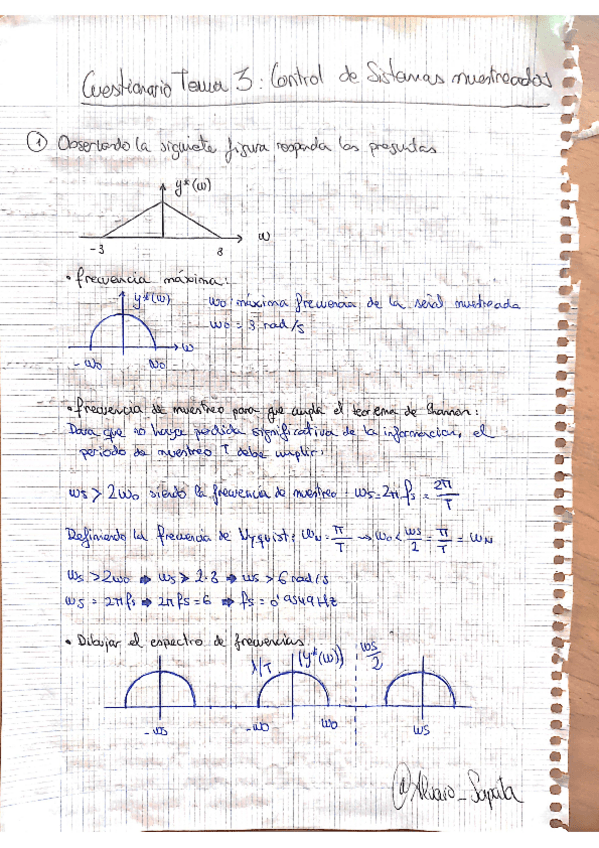 Cuestionario Tema 3: Control de Sistemas muestreados
① Observando la siguiete figura responda las preguntas
y*(ω)
-3 3 ω
• frecuencia máxima:
y*(ω) ω
-ωo ωo
ωo: máxima frecuencia de la señal muestreada
ωo = 3 rad/s
• frecuencia de muestreo para que cumpla el teorema de Shannon:
Para que no haya perdida significativa de la informacion, el
periodo de muestreo T debe cumplir:
ωs > 2ωo siendo la frecuencia de muestreo: ωs = 2π fs = 2π/T
Definiendo la frecuencia de Nyquist: ωN = π/T → ωo < ωs/2 = π/T = ωN
ωs > 2ωo ⇒ ωs > 2·3 ⇒ ωs > 6 rad/s
ωs = 2πfs ⇒ 2πfs = 6 ⇒ fs = 0'9549 Hz
• Dibujar el espectro de frecuencias
1/T |y*(ω)| ωs/2
-ωs -ωo ωo ωs
@Alvaro_Zapata